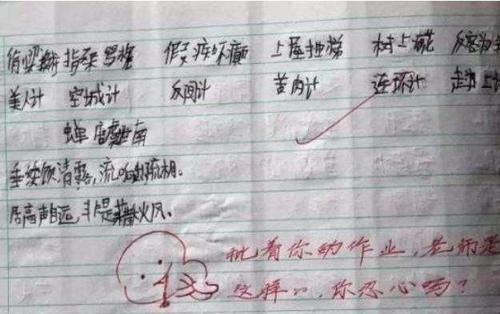 偷梁换柱 指桑骂槐 假痴不癫 上屋抽梯 树上开花 反客为
美人计 空城计 反间计 苦肉计 连环计 走为上计
蝉 虞世南
垂緌饮清露,流响出疏桐。
居高声自远,非是藉秋风。
批着你的作业,老师是
这样的,你忍心吗?